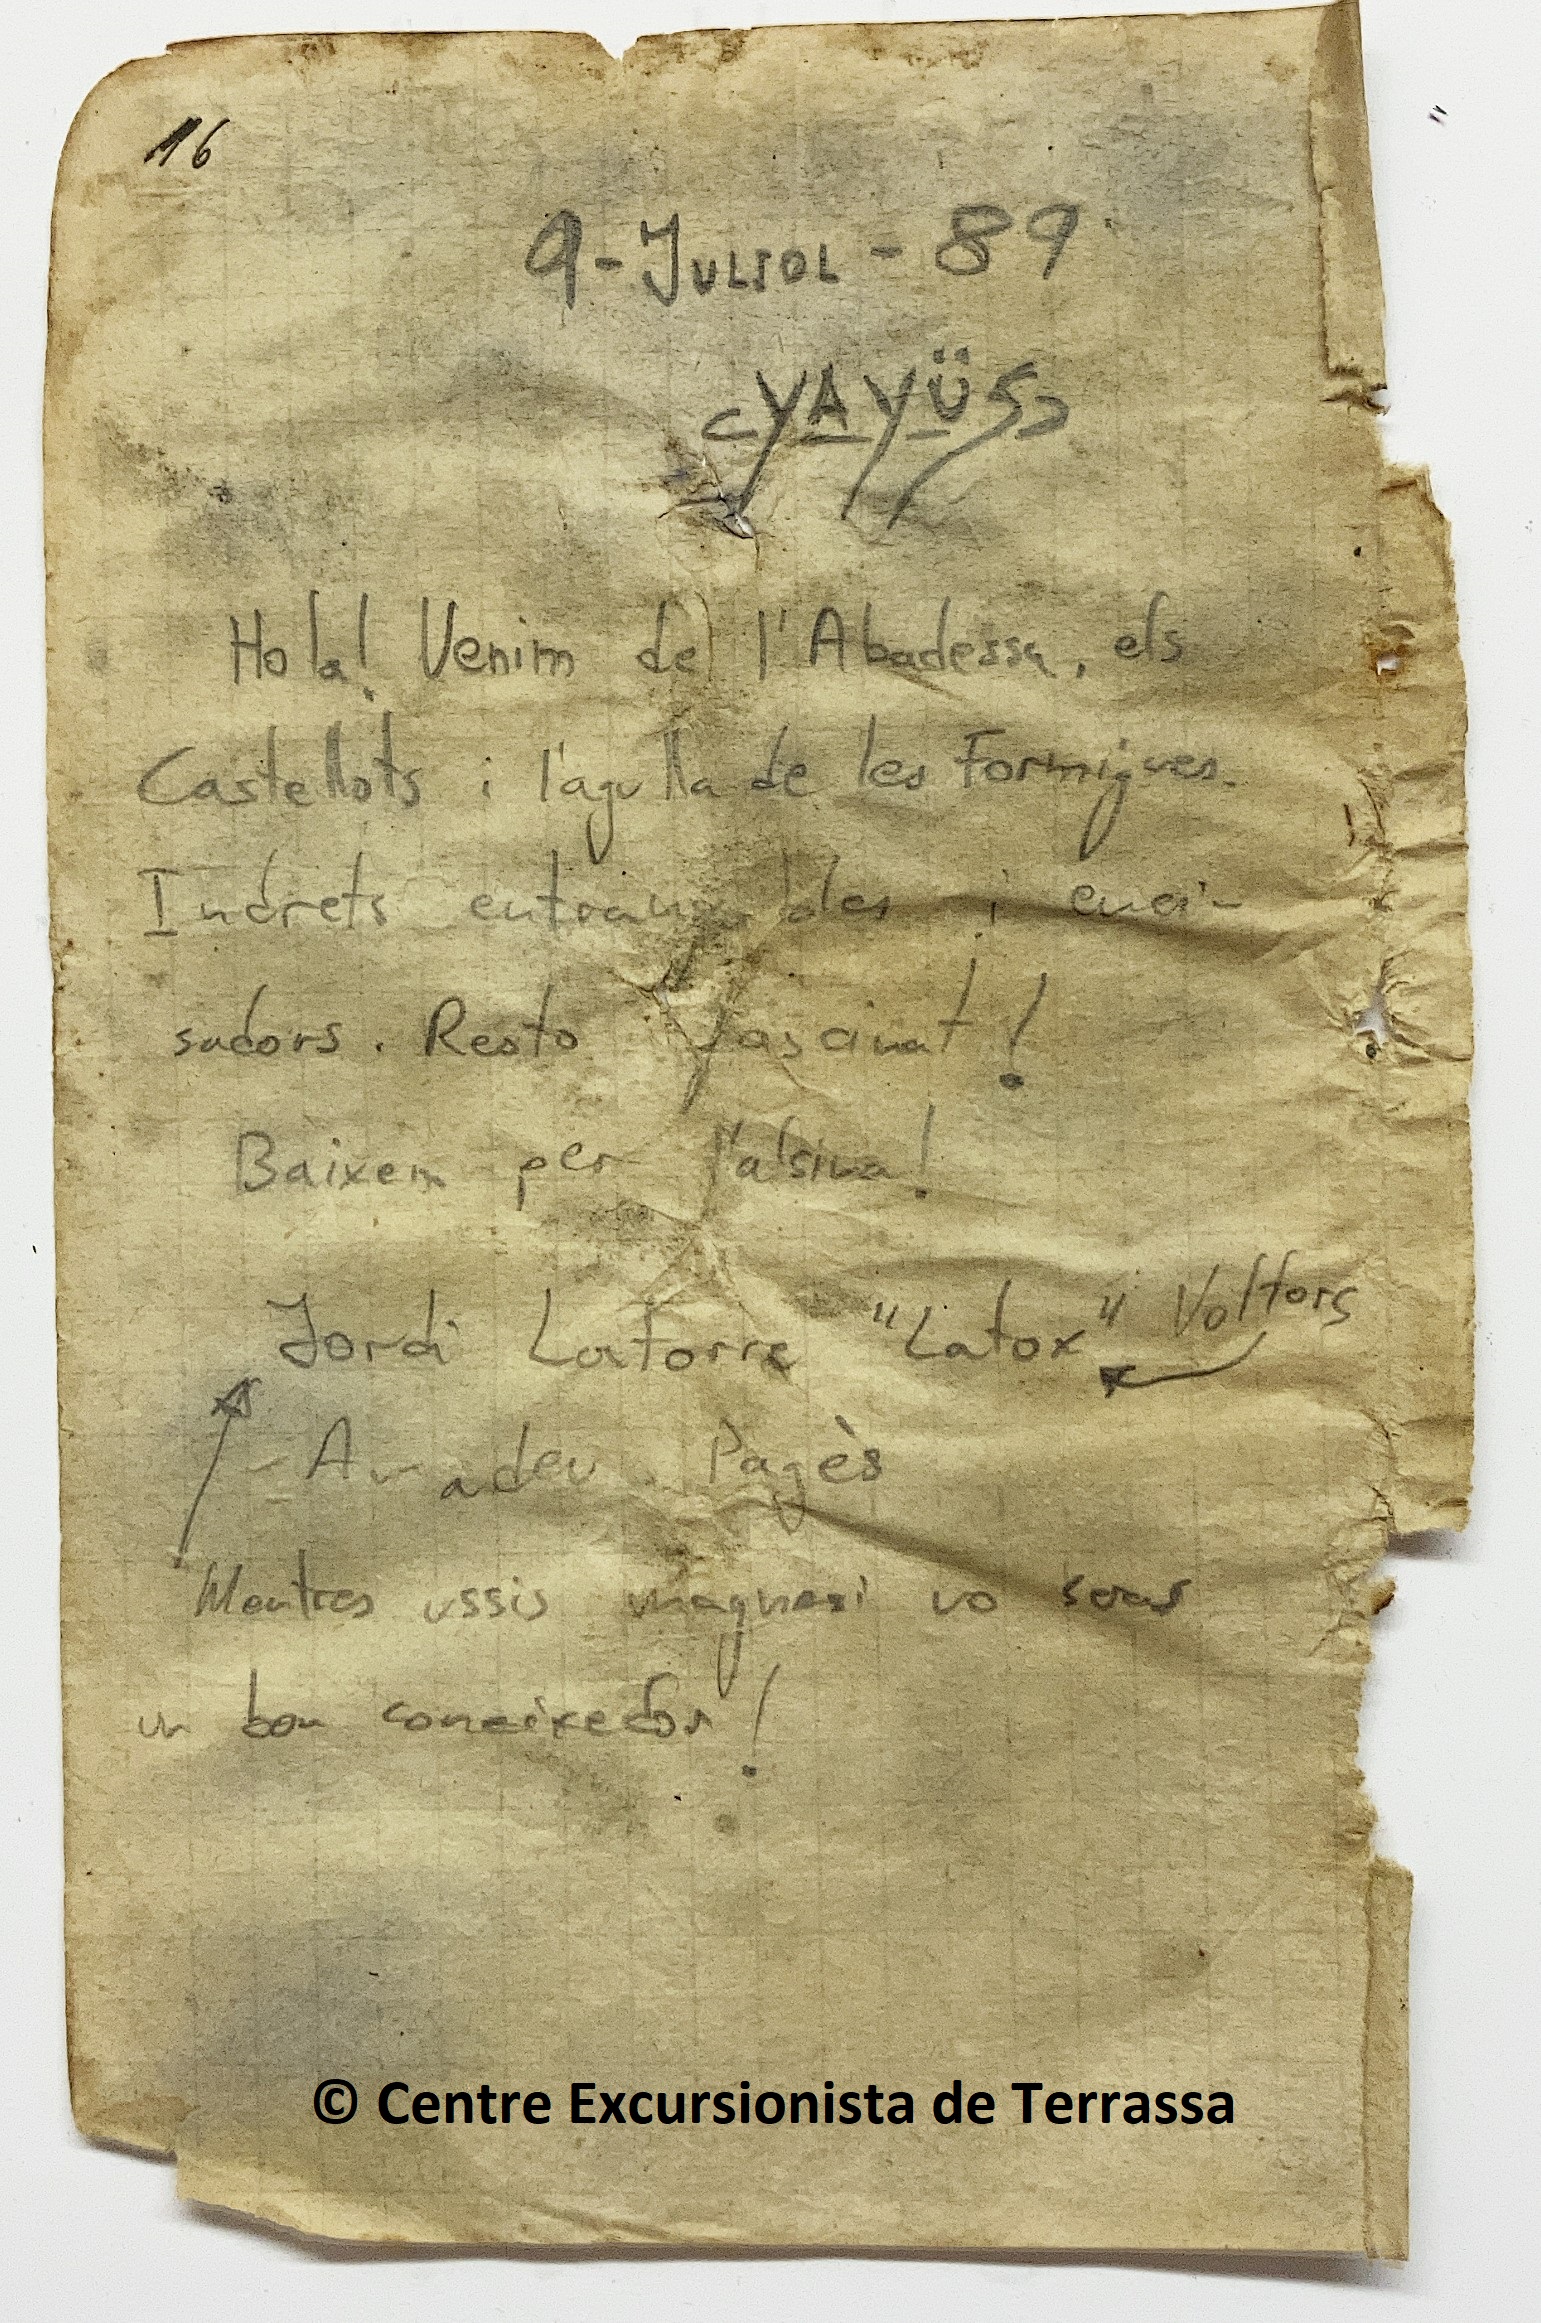 16
9-JULIOL-89
YAYÜS
Hola! Venim de l'Abadessa, els
Castellots i l'agulla de les Formigues.
Indrets entranyables i enci-
sadors. Resto fascinat!
Baixem per l'alsina!
Jordi Latorre "Latox" Voltors
- Amadeu Pagès
Mentres ussis magnesi no seras
un bon coneixedor!
© Centre Excursionista de Terrassa